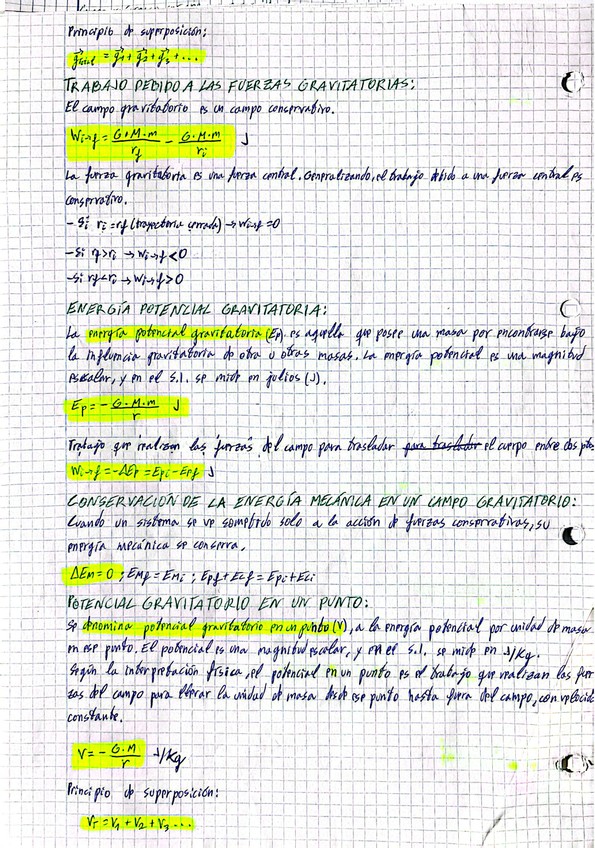 Principio de superposición:
g⃗total = g⃗1 + g⃗2 + g⃗3 + ...
TRABAJO DEBIDO A LAS FUERZAS GRAVITATORIAS:
El campo gravitatorio es un campo conservativo.
Wi→f = G·M·m/rf - G·M·m/ri J
La fuerza gravitatoria es una fuerza central. Generalizando, el trabajo debido a una fuerza central es
conservativo.
- Si ri = rf (trayectoria cerrada) → Wi→f = 0
- Si rf > ri → Wi→f < 0
- Si rf < ri → Wi→f > 0
ENERGÍA POTENCIAL GRAVITATORIA:
La energía potencial gravitatoria (Ep) es aquella que posee una masa por encontrarse bajo
la influencia gravitatoria de otra u otras masas. La energía potencial es una magnitud
escalar, y en el S.I. se mide en julios (J).
Ep = - G·M·m/r J
Trabajo que realizan las fuerzas del campo para trasladar para trasladar el cuerpo entre dos ptos
Wi→f = -ΔEp = Epi - Epf J
CONSERVACIÓN DE LA ENERGÍA MECÁNICA EN UN CAMPO GRAVITATORIO:
Cuando un sistema se ve sometido solo a la acción de fuerzas conservativas, su
energía mecánica se conserva.
ΔEm = 0 ; Emf = Emi ; Epf + Ecf = Epi + Eci
POTENCIAL GRAVITATORIO EN UN PUNTO:
Se denomina potencial gravitatorio en un punto (V), a la energía potencial por unidad de masa
en ese punto. El potencial es una magnitud escalar, y en el S.I. se mide en J/Kg.
Según la interpretación física, el potencial en un punto es el trabajo que realizan las fuer
zas del campo para llevar la unidad de masa desde ese punto hasta fuera del campo, con velocid
constante.
V = - G·M/r J/Kg
Principio de superposición:
VT = V1 + V2 + V3 ...